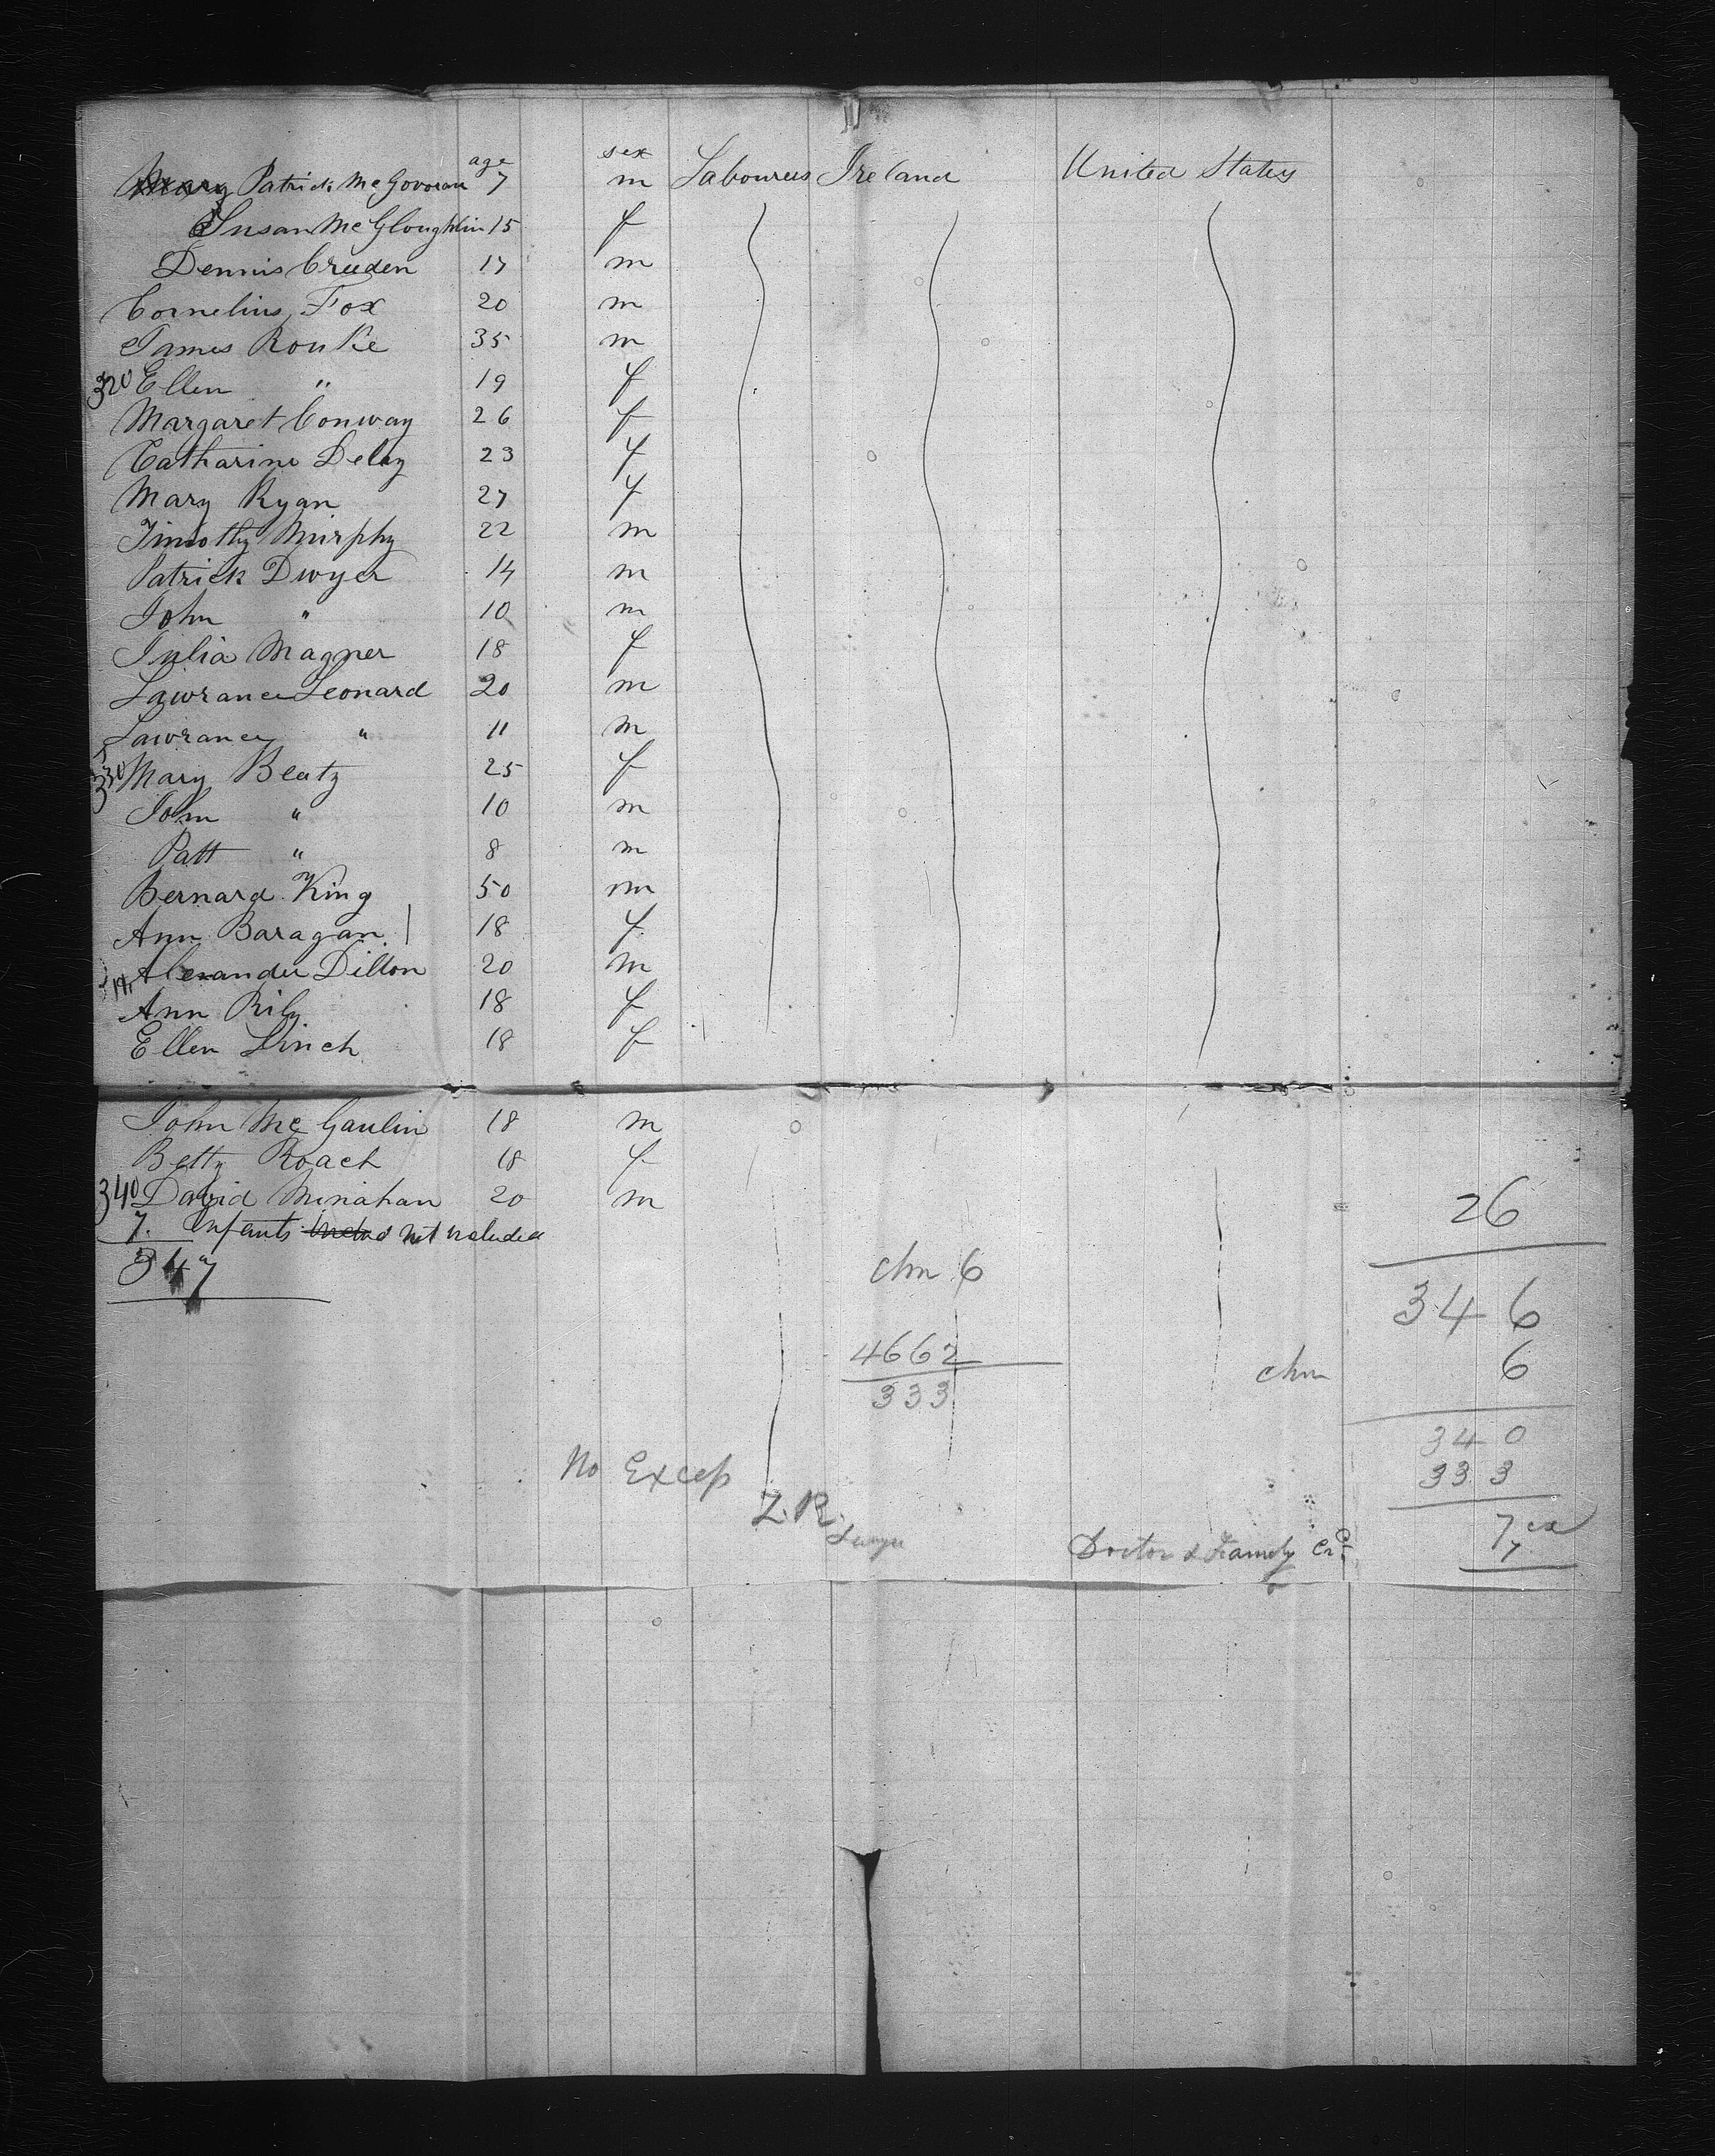 age sex
Mary Patrick McGovoran 7 m Labourers Ireland United States
Susan McGloughlin 15 f
Dennis Creeden 17 m
Cornelius Fox 20 m
James Rourke 35 m
320 Ellen " 19 f
Margaret Conway 26 f
Catharine Delay 23 f
Mary Ryan 27 f
Timothy Murphy 22 m
Patrick Dwyer 14 m
John " 10 m
Julia Magner 18 f
Lawrance Leonard 20 m
Lawrance " 11 m
330 Mary Beatz 25 f
John " 10 m
Patt " 8 m
Bernard King 50 m
Ann Baragan 18 f
Alexander Dillon 20 m
Ann Rily 18 f
Ellen Linch 18 f
John McGaulin 18 m
Betty Roach 18 f
340 David Minahan 20 m
7. Infants not included
347
26
chn 6
346
4662
chn 6
333
340
No Excep
333
Z.R.
Doctor & Family
7 ex
7